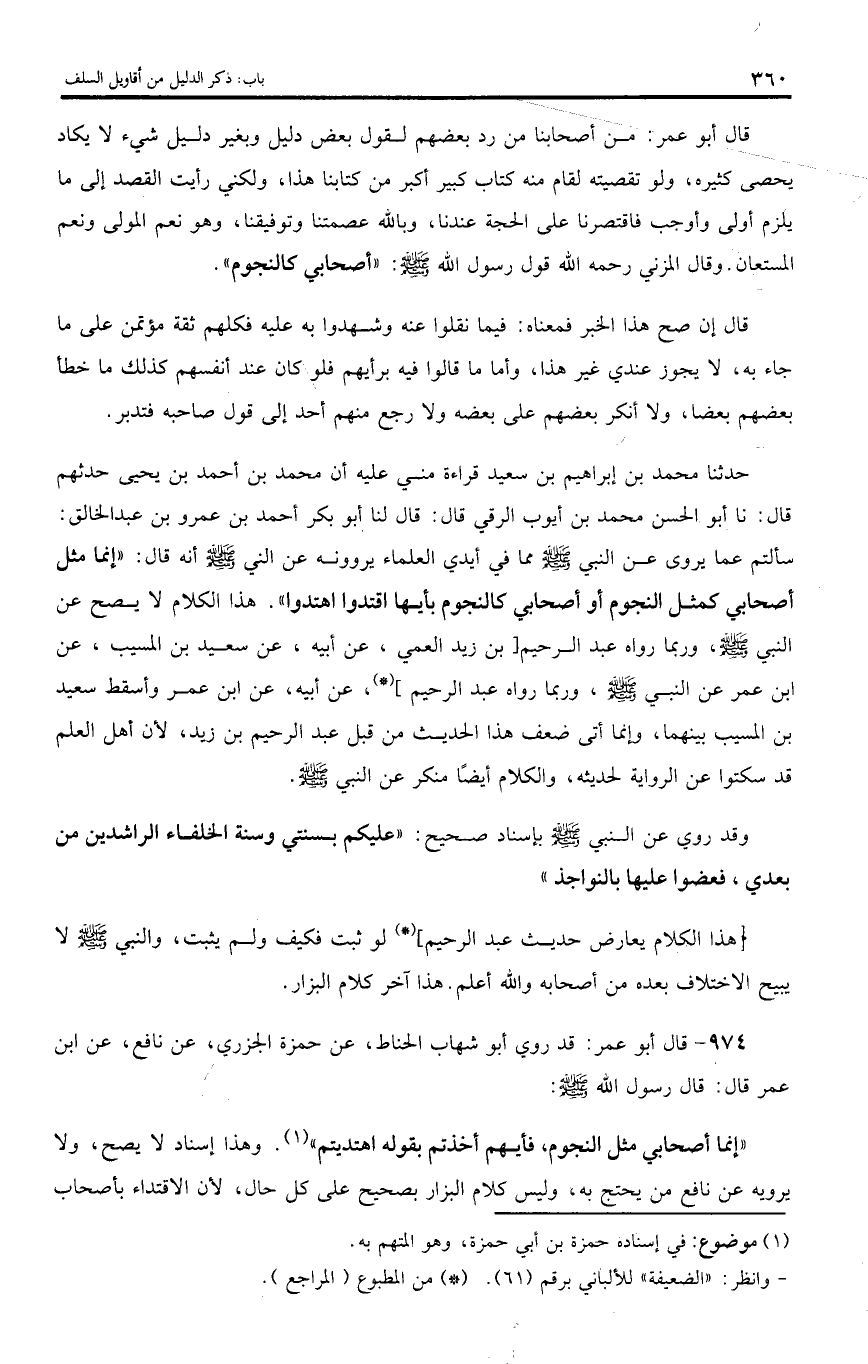 ٣٦٠ باب: ذكر الدليل من أقاويل السلف
قال أبو عمر: مـن أصحابنا من رد بعضهم لـقول بعض دليل وبغير دلـيل شيء لا يكاد
يحصى كثيره، ولو تقصيته لقام منه كتاب كبير أكبر من كتابنا هذا، ولكني رأيت القصد إلى ما
يلزم أولى وأوجب فاقتصرنا على الحجة عندنا، وبالله عصمتنا وتوفيقنا، وهو نعم المولى ونعم
المستعان. وقال المزني رحمه الله قول رسول الله ﷺ: «أصحابي كالنجوم».
قال إن صح هذا الخبر فمعناه: فيما نقلوا عنه وشـهدوا به عليه فكلهم ثقة مؤتمن على ما
جاء به، لا يجوز عندي غير هذا، وأما ما قالوا فيه برأيهم فلو كان عند أنفسهم كذلك ما خطأ
بعضهم بعضا، ولا أنكر بعضهم على بعضه ولا رجع منهم أحد إلى قول صاحبه فتدبر.
حدثنا محمد بن إبراهيم بن سعيد قراءة منـي عليه أن محمد بن أحمد بن يحيى حدثهم
قال: نا أبو الحسن محمد بن أيوب الرقي قال: قال لنا أبو بكر أحمد بن عمرو بن عبدالخالق:
سألتم عما يروى عـن النبي ﷺ مما في أيدي العلماء يروونـه عن الني ﷺ أنه قال: «إنما مثل
أصحابي كمثـل النجوم أو أصحابي كالنجوم بأيـها اقتدوا اهتدوا». هذا الكلام لا يـصح عن
النبي ﷺ، وربما رواه عبد الـرحيم[ بن زيد العمي ، عن أبيه ، عن سعـيد بن المسيب ، عن
ابن عمر عن النبـي ﷺ ، وربما رواه عبد الرحيم ](*)، عن أبيه، عن ابن عمـر وأسقط سعيد
بن المسيب بينهما، وإنما أتى ضعف هذا الحديـث من قبل عبد الرحيم بن زيد، لأن أهل العلم
قد سكتوا عن الرواية لحديثه، والكلام أيضًا منكر عن النبي ﷺ.
وقد روي عن الـنبي ﷺ بإسناد صـحيح: «عليكم بـسنتي وسنة الخلفـاء الراشدين من
بعدي ، فعضوا عليها بالنواجذ »
{هذا الكلام يعارض حديـث عبد الرحيم](*) لو ثبت فكيف ولـم يثبت، والنبي ﷺ لا
يبيح الاختلاف بعده من أصحابه والله أعلم. هذا آخر كلام البزار.
٩٧٤- قال أبو عمر: قد روي أبو شهاب الحناط، عن حمزة الجزري، عن نافع، عن ابن
عمر قال: قال رسول الله ﷺ:
«إنما أصحابي مثل النجوم، فأيـهم أخذتم بقوله اهتديتم»(١). وهذا إسناد لا يصح، ولا
يرويه عن نافع من يحتج به، وليس كلام البزار بصحيح على كل حال، لأن الاقتداء بأصحاب
(١) موضوع: في إسناده حمزة بن أبي حمزة، وهو المتهم به.
- وانظر: «الضعيفة» للألباني برقم (٦١). (*) من المطبوع ( المراجع ).